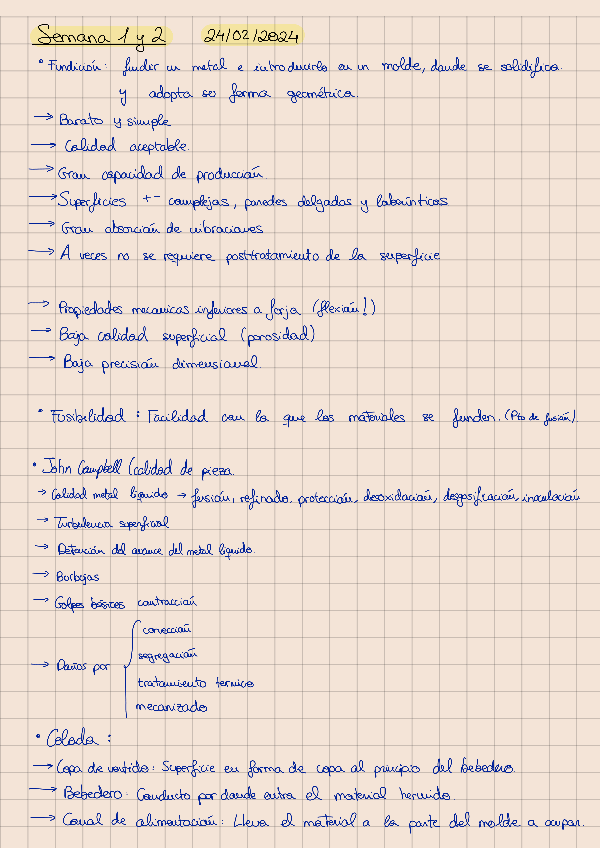 Semana 1 y 2 24/02/2024
• Fundición: fundir un metal e introducirlo en un molde, donde se solidifica
y adopta se forma geométrica.
→ Barato y simple
→ Calidad aceptable.
→ Gran capacidad de producción.
→ Superficies +- complejas, paredes delgadas y laberínticas
→ Gran absorción de vibraciones
→ A veces no se requiere posttratamiento de la superficie
→ Propiedades mecanicas inferiores a forja (flexión!)
→ Baja calidad superficial (porosidad)
→ Baja precisión dimensional.
• Fusibilidad: Facilidad con la que los materiales se funden. (Pto de fusión).
• John Campbell (calidad de pieza.
→ Calidad metal líquido → fusión, refinado, protección, desoxidación, desgasificación, inoculación
→ Turbulencia superficial
→ Detención del avance del metal líquido.
→ Borbojas
→ contracción
→ Daños por
conección
segregación
tratamiento termico
mecanizado
• Colada:
→ Copa de vertido: Superficie en forma de copa al principio del bebedero.
→ Bebedero: Conducto por donde entra el material
→ Canal de alimentación: Lleva el material a la parte del molde a ocupar.